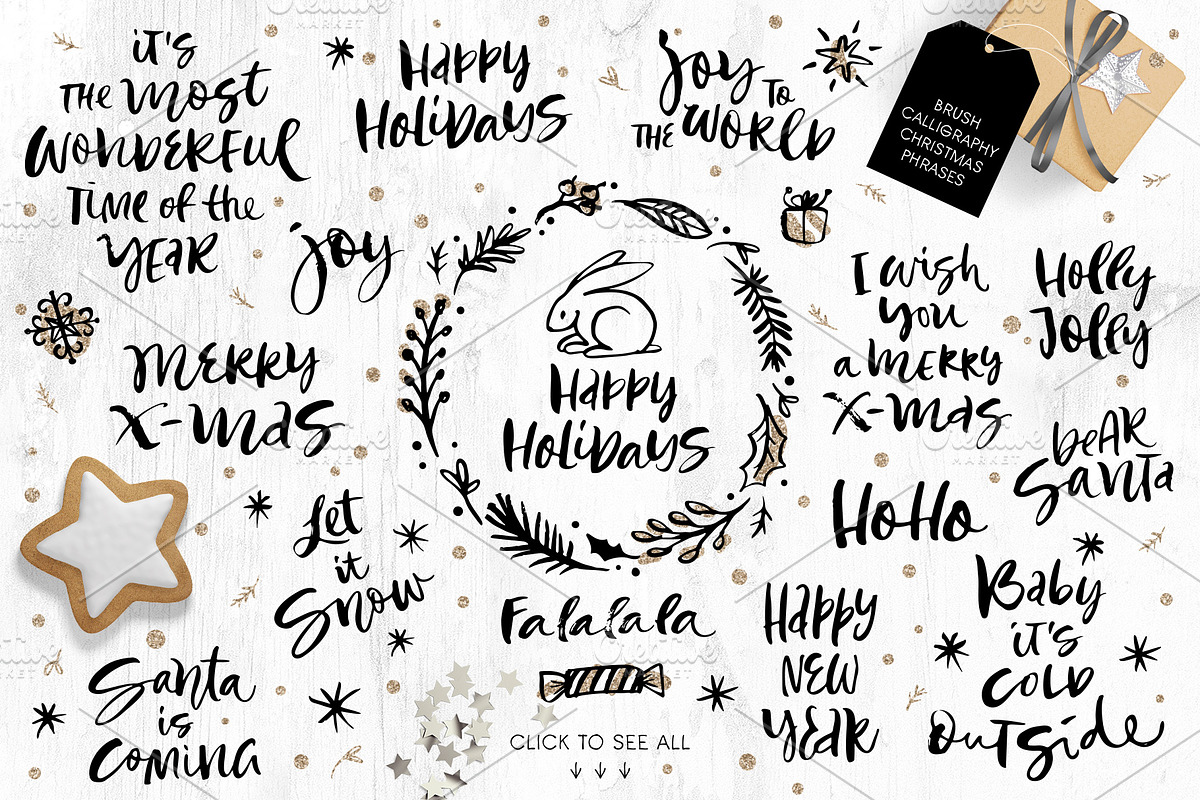 it's
THE most
WONDERFUL
TIME of the
YEAR
Happy
Holidays
Joy To
THE WORLD
BRUSH
CALLIGRAPHY
CHRISTMAS
PHRASES
joy
MERRY
X-mas
Happy
Holidays
I wish
you
a MERRY
X-mas
Holly
Jolly
DEAR
Santa
HoHo
Let
it
Snow
Falalala
Happy
NEW
YEAR
Baby
it's
COLD
OUTSide
Santa
is
Coming
CLICK TO SEE ALL
Creative
MARKET